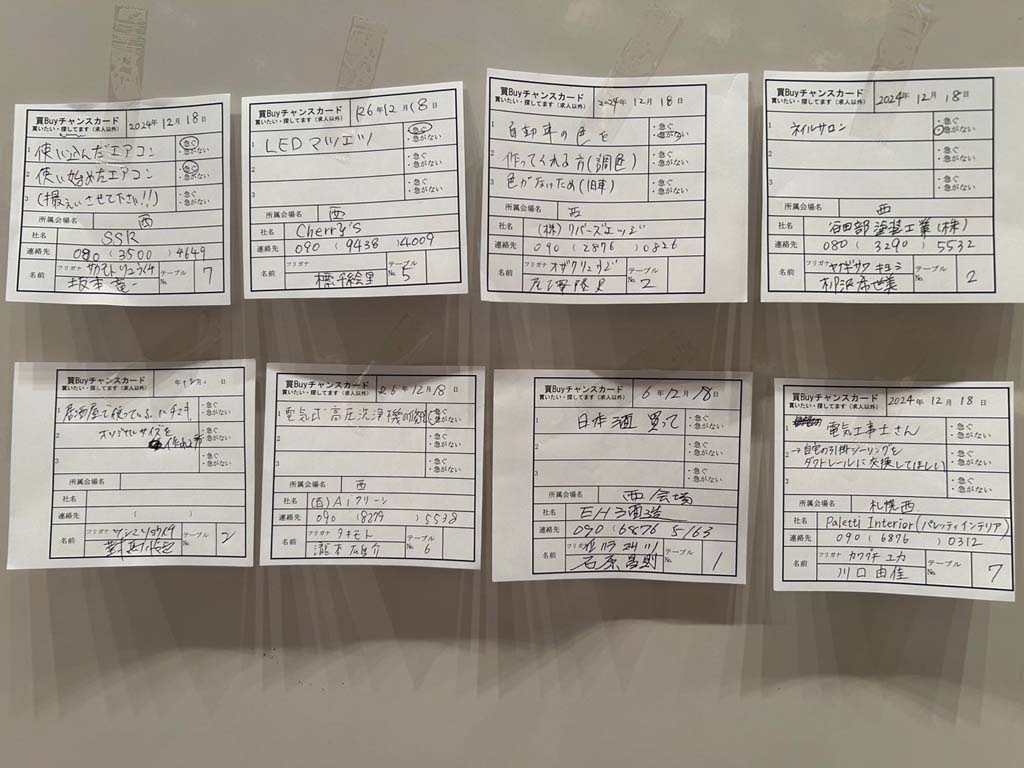 買Buyチャンスカード
買いたい・探してます(求人以外)
2024年 12月 18日
1 使い込んだエアコン ・急ぐ ・急がない
2 使い始めたエアコン ・急ぐ ・急がない
3 (撮えいさせて下さい!!) ・急ぐ ・急がない
所属会場名 西
社名 SSR
連絡先 080 (3500) 4649
名前 フリガナ サカモトリュウイチ
坂本竜一
テーブルNo. 7
買Buyチャンスカード
買いたい・探してます(求人以外)
R6年 12月 18日
1 LEDマツエツ ・急ぐ ・急がない
2 ・急ぐ ・急がない
3 ・急ぐ ・急がない
所属会場名 西
社名 Cherry's
連絡先 090 (9438) 4009
名前 フリガナ
千絵里
テーブルNo. 5
買Buyチャンスカード
買いたい・探してます(求人以外)
2024年 12月 18日
1 自動車の色を ・急ぐ ・急がない
2 作ってくれる方(調色) ・急ぐ ・急がない
3 色がないため(旧車) ・急ぐ ・急がない
所属会場名 西
社名 (株)リバースエッジ
連絡先 090 (2896) 0826
名前 フリガナ
テーブルNo. 2
買Buyチャンスカード
買いたい・探してます(求人以外)
2024年 12月 18日
1 ネイルサロン ・急ぐ ・急がない
2 ・急ぐ ・急がない
3 ・急ぐ ・急がない
所属会場名 西
社名 谷田部塗装工業(株)
連絡先 080 (3290) 5532
名前 フリガナ ヤナギサワ キヨミ
柳沢希世美
テーブルNo. 2
買Buyチャンスカード
買いたい・探してます(求人以外)
年 12月 日
1 居酒屋で使っている ・急ぐ ・急がない
2 オリジナルサイズを ・急ぐ ・急がない
3 ・急ぐ ・急がない
所属会場名
社名
連絡先 ( )
名前 フリガナ
テーブルNo. 2
買Buyチャンスカード
買いたい・探してます(求人以外)
R6年 12月 18日
1 電気式高圧洗浄機の修理 ・急ぐ ・急がない
2 ・急ぐ ・急がない
3 ・急ぐ ・急がない
所属会場名 西
社名 (有)AIクリーン
連絡先 090 (8279) 5538
名前 フリガナ タキモト
テーブルNo. 6
買Buyチャンスカード
買いたい・探してます(求人以外)
6年 12月 18日
1 日本酒 買って ・急ぐ ・急がない
2 ・急ぐ ・急がない
3 ・急ぐ ・急がない
所属会場名 西会場
社名 EH酒造
連絡先 090 (6876) 5163
名前 フリガナ
石原昌則
テーブルNo. 1
買Buyチャンスカード
買いたい・探してます(求人以外)
2024年 12月 18日
1 電気工事士さん ・急ぐ ・急がない
2 →自宅の引掛シーリングを ・急ぐ ・急がない
ダクトレールに交換してほしい
3 ・急ぐ ・急がない
所属会場名 札幌西
社名 Paletti Interior(パレッティインテリア)
連絡先 090 (6896) 0312
名前 フリガナ カワグチ ユカ
川口由佳
テーブルNo. 7